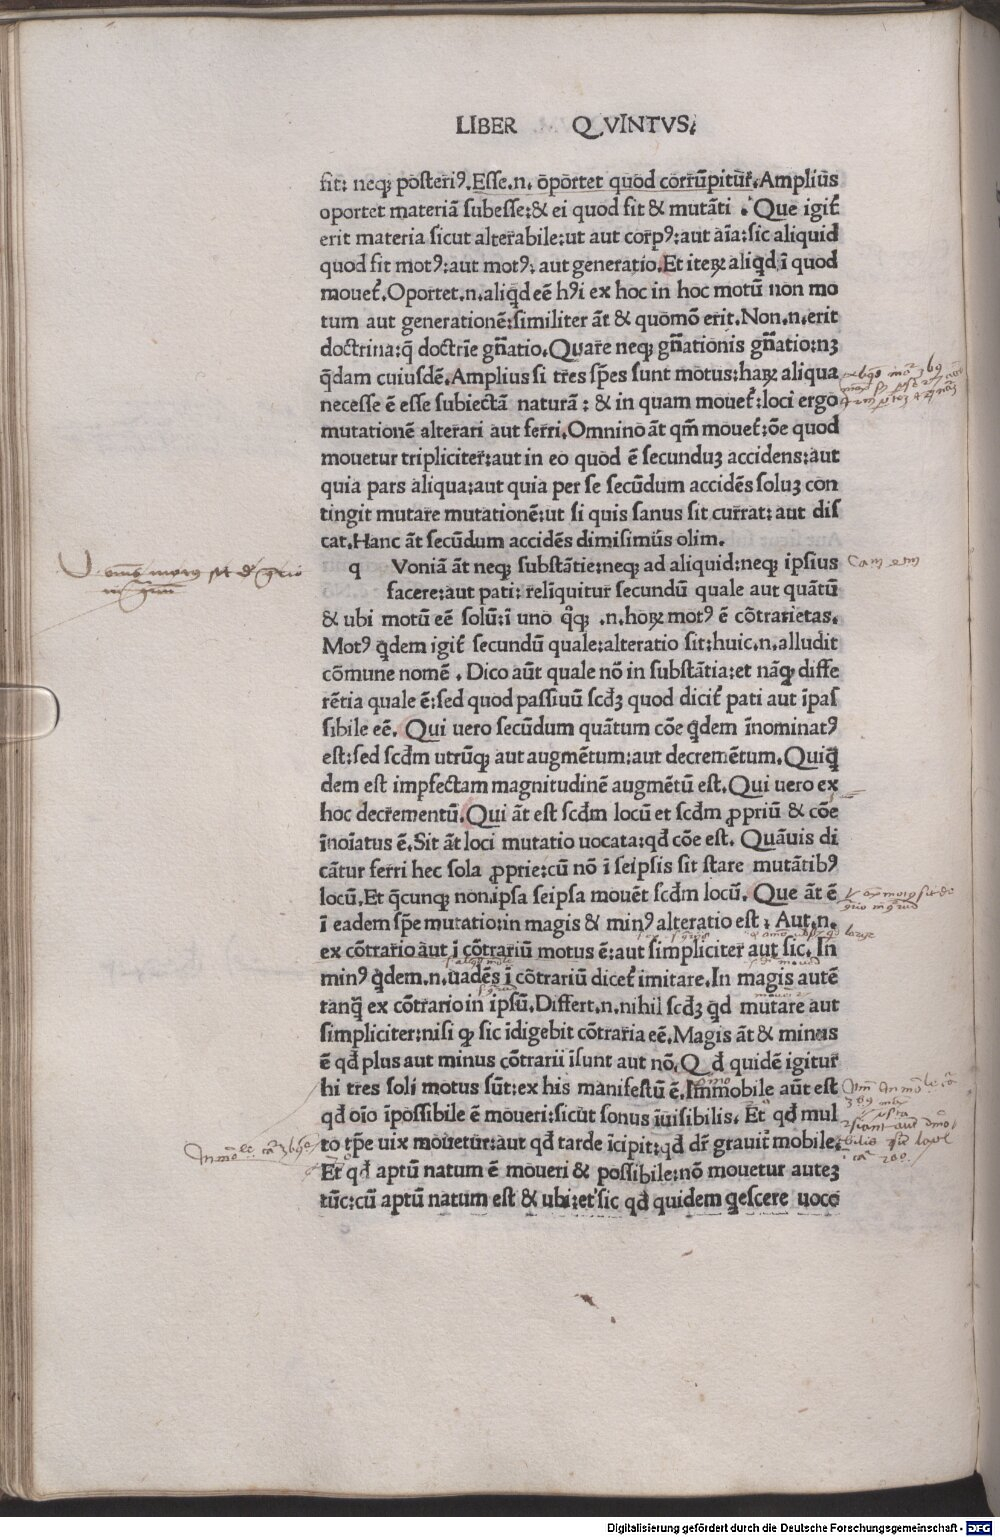 LIBER QVINTVS.
fit: neqȝ posteriꝰ. Esse .n. oportet quod corrūpitur̄. Amplius
oportet materiā subesse: & ei quod fit & mutāti. Que igiť
erit materia sicut alterabile: ut aut corpꝰ: aut aīa: sic aliquid
quod fit motꝰ: aut motꝰ: aut generatio. Et iteꝝ aliqd ī quod
moueť. Oportet .n. aliqd eē hꝰi ex hoc in hoc motū non mo
tum aut generationē: similiter āt & quomō erit. Non .n. erit
doctrina: q̄ doctrīe gn̄atio. Quare neqȝ gn̄ationis gn̄atio: nȝ
q̄dam cuiusdē. Amplius si tres spēs sunt motus: haꝝ aliqua
necesse ē esse subiectā naturā: & in quam moueť: loci ergo
mutationē alterari aut ferri. Omnino āt qm̄ moueť: ōe quod
mouetur tripliciter: aut in eo quod ē secunduȝ accidens: aut
quia pars aliqua: aut quia per se secūdum accidēs soluȝ con
tingit mutare mutationē: ut si quis sanus fit currat: aut dis
cat. Hanc āt secūdum accidēs dimisimus olim.
q Voniā āt neqȝ substātie: neqȝ ad aliquid: neqȝ ipsius
facere: aut pati: relīquitur secundū quale aut quātū
& ubi motū eē solū: ī uno qͦqȝ .n. hoꝝ motꝰ ē cōtrarietas.
Motꝰ qdem igiť secundū quale: alteratio sit: huic .n. alludit
cōmune nomē. Dico aūt quale nō in substātia: et nāqȝ diffe
rētia quale ē: sed quod passiuū scdȝ quod diciť pati aut īpas
sibile eē. Qui uero secūdum quātum cōe qdem īnominatꝰ
est: sed scdm utrūqȝ aut augmētum: aut decremētum. Quiq
dem est impfectam magnitudinē augmētū est. Qui uero ex
hoc decrementū. Qui āt est scdm locū et scdm ꝓpriū & cōe
īnoīatus ē. Sit āt loci mutatio uocata: qd cōe est. Quāuis di
cātur ferri hec sola ꝓprie: cū nō ī seipsis sit stare mutātibꝰ
locū. Et q̄cunqȝ non ipsa seipsa mouēt scdm locū. Que āt ē
ī eadem spē mutatio: in magis & minꝰ alteratio est. Aut .n.
ex cōtrario aut ī cōtrariū motus ē: aut simpliciter aut sic. In
minꝰ qdem .n. uadēs ī cōtrariū diceť imitare. In magis autē
tanq̄ ex cōtrario in ipsū. Differt .n. nihil scdȝ qd mutare aut
simpliciter: nisi qȝ sic īdigebit cōtraria eē. Magis āt & minus
ē qd plus aut minus cōtrarii īsunt aut nō. Qd quidē igitur
hi tres soli motus sūt: ex his manifestū ē. Immobile aūt est
qd oīo īpossibile ē moueri: sicut sonus īuisibilis. Et qd mul
to tpe uix mouetur: aut qd tarde īcipit: qd dr̄ grauit mobile.
Et qd aptū natum ē moueri & possibile: nō mouetur auteȝ
tūc: cū aptū natum est & ubi: et sic qd quidem qescere uoco
Digitalisierung gefördert durch die Deutsche Forschungsgemeinschaft - DFG